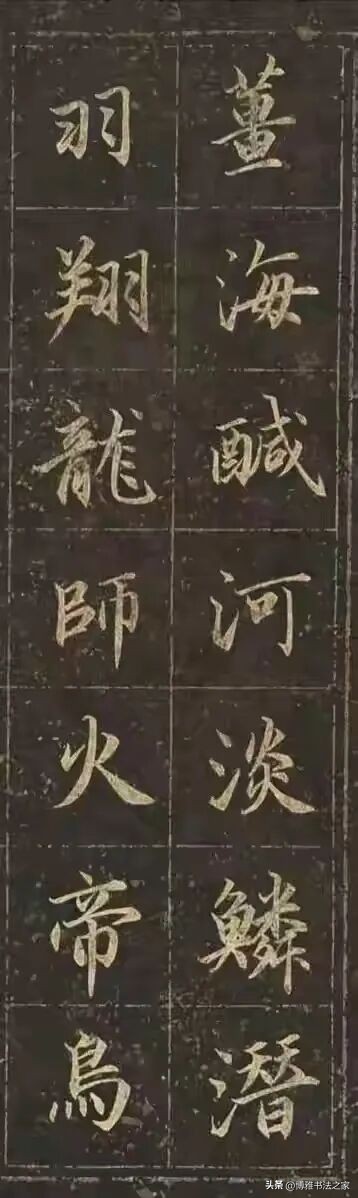 薑海醎河淡鱗潛
羽翔龍師火帝鳥
头条 @博雅书法之家